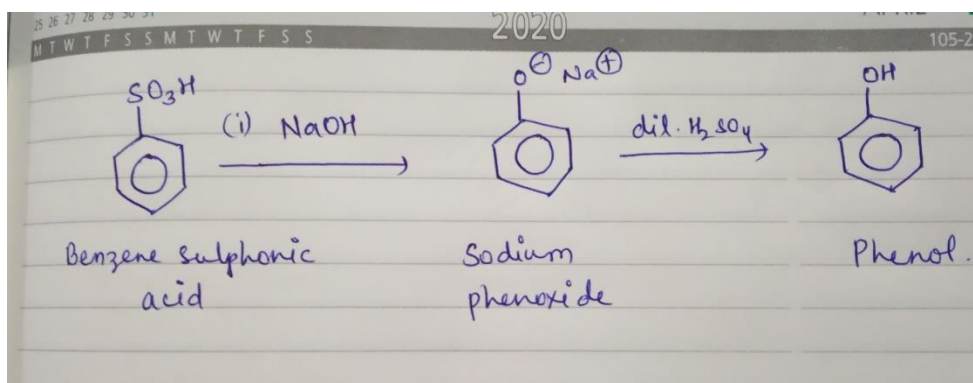 25 26 27 28 29 30 31
M T W T F S S M T W T F S S
2020
105-2
SO3H
(i) NaOH
O⊖ Na⊕
dil. H2SO4
OH
Benzene sulphonic
acid
Sodium
phenoxide
Phenol.